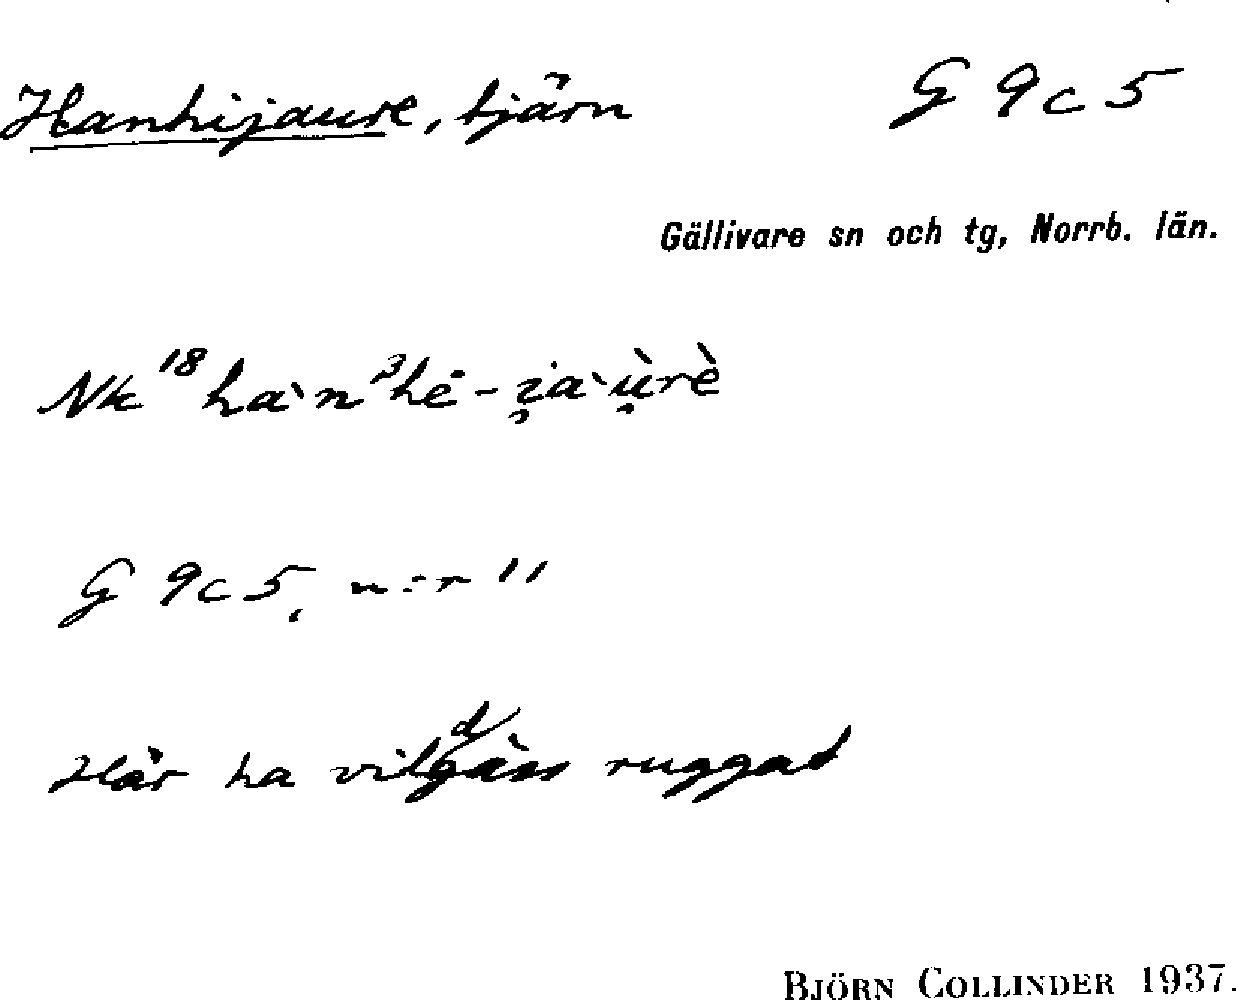 Hanhijaure, tjärn G 9c5
Gällivare sn och tg, Norrb. län.
Nk 18
G 9c5,
Här ha vildgäss ruggat
BJÖRN COLLINDER 1937.